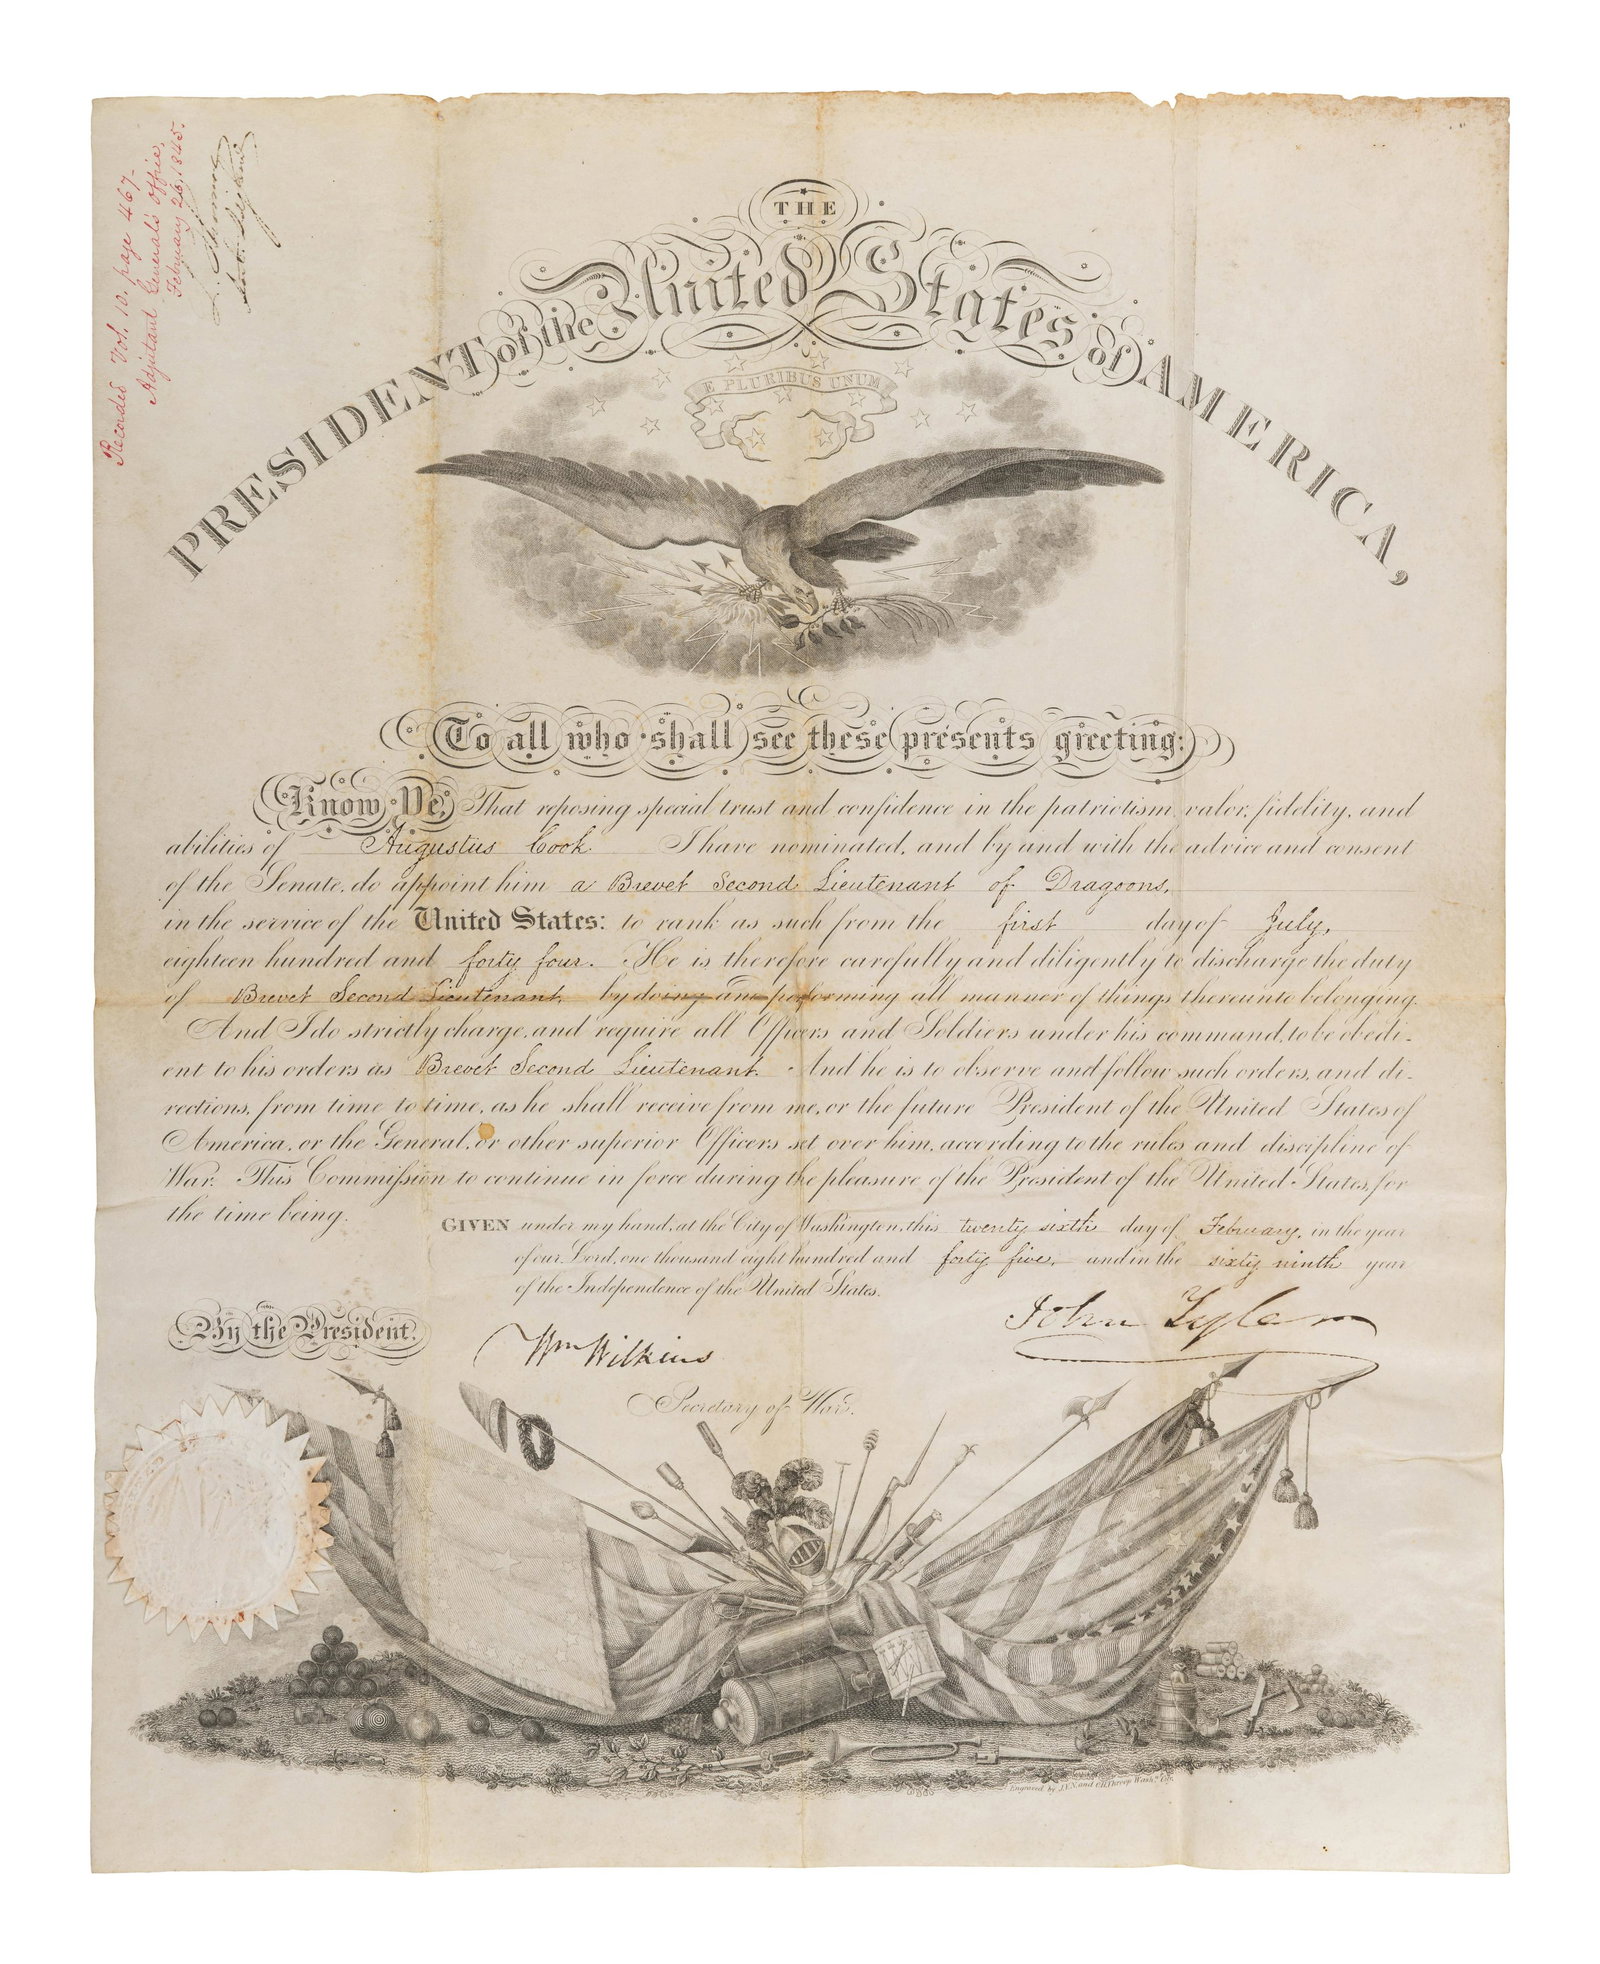 Recorded Vol. 10. page 467.
Adjutant General's Office,
February 26, 1845.
L. Thomas
THE
PRESIDENT of the United States of AMERICA,
E PLURIBUS UNUM
To all who shall see these presents greeting:
Know Ye, That reposing special trust and confidence in the patriotism, valor, fidelity, and
abilities of Augustus Cook I have nominated, and by and with the advice and consent
of the Senate, do appoint him a Brevet Second Lieutenant of Dragoons,
in the service of the United States: to rank as such from the first day of July,
eighteen hundred and forty four. He is therefore carefully and diligently to discharge the duty
of Brevet Second Lieutenant by doing and performing all manner of things thereunto belonging.
And I do strictly charge, and require all Officers and Soldiers under his command, to be obedi-
ent to his orders as Brevet Second Lieutenant. And he is to observe and follow such orders, and di-
rections, from time to time, as he shall receive from me, or the future President of the United States of
America, or the General, or other superior Officers set over him, according to the rules and discipline of
War. This Commission to continue in force during the pleasure of the President of the United States, for
the time being.
GIVEN under my hand, at the City of Washington, this twenty sixth day of February, in the year
of our Lord, one thousand eight hundred and forty five, and in the sixty ninth year
of the Independence of the United States.
By the President.
John Tyler
Wm Wilkins
Secretary of War.
Engraved by J.V.N. and O.H. Throop Washn. City